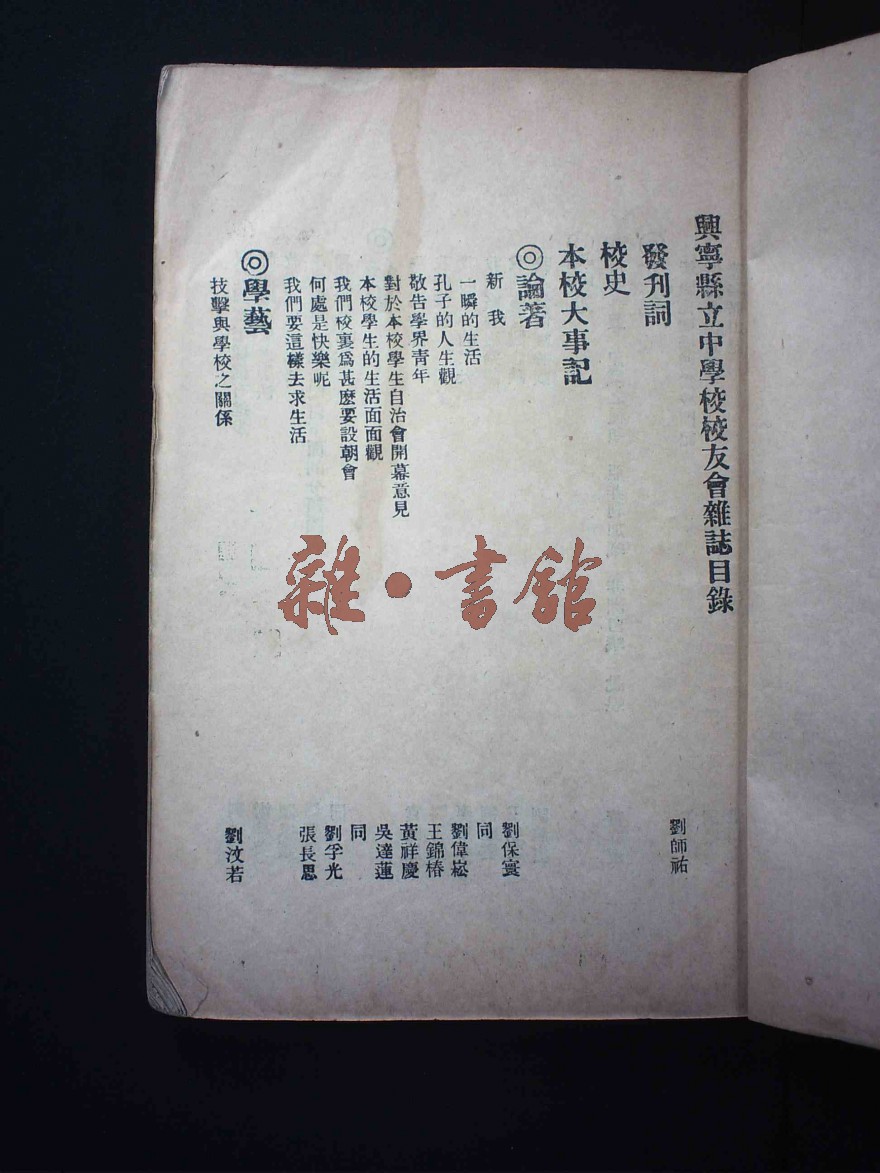 興寧縣立中學校校友會雜誌目錄
發刊詞 劉師祐
校史
本校大事記
◎論著
新我 劉保寰
一瞬的生活 同
孔子的人生觀 劉偉崧
敬告學界青年 王錦椿
對於本校學生自治會開幕意見 黃祥慶
本校學生的生活面面觀 吳達蓮
我們校裏爲甚麽要設朝會 同
何處是快樂呢 劉孚光
我們要這樣去求生活 張長思
◎學藝
技擊與學校之關係 劉汶若
雜·書館